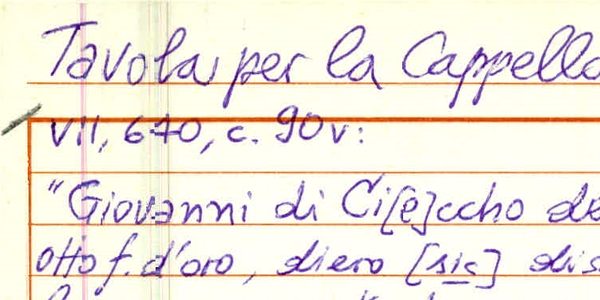 Tavola per la Cappella
VII, 670, c. 90v:
"Giovanni di Ci[e]ccho de
otto f. d'oro, diero [sic] dis